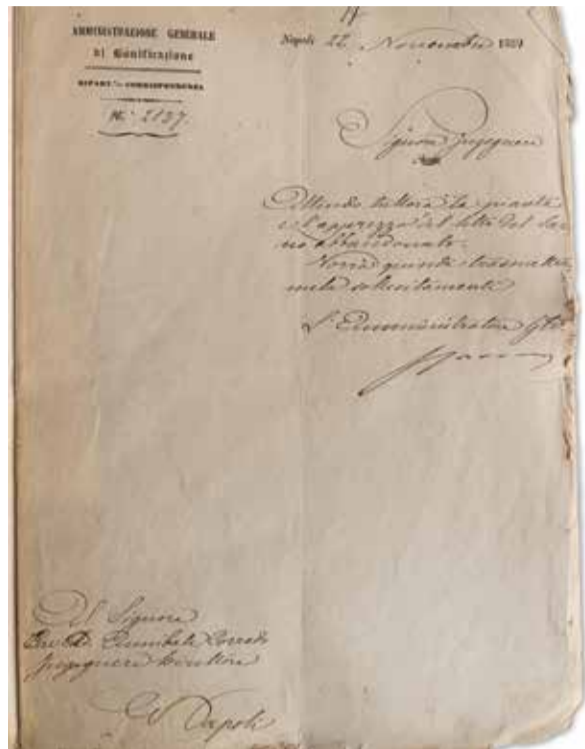 AMMINISTRAZIONE GENERALE
di Bonificazione
RIPART.to CORRISPONDENZA
N.° 2137.
Napoli 22 Novembre 1859
Signore Ingegnere
Attendo tuttora la pianta
e l'apprezzo del letto del Sar
no abbandonato.
Vorrà quindi trasmetter
mela sollecitamente
L'Amministratore Gle
Al Signore
D. Annibale Corrado
Ingegnere Direttore
Napoli